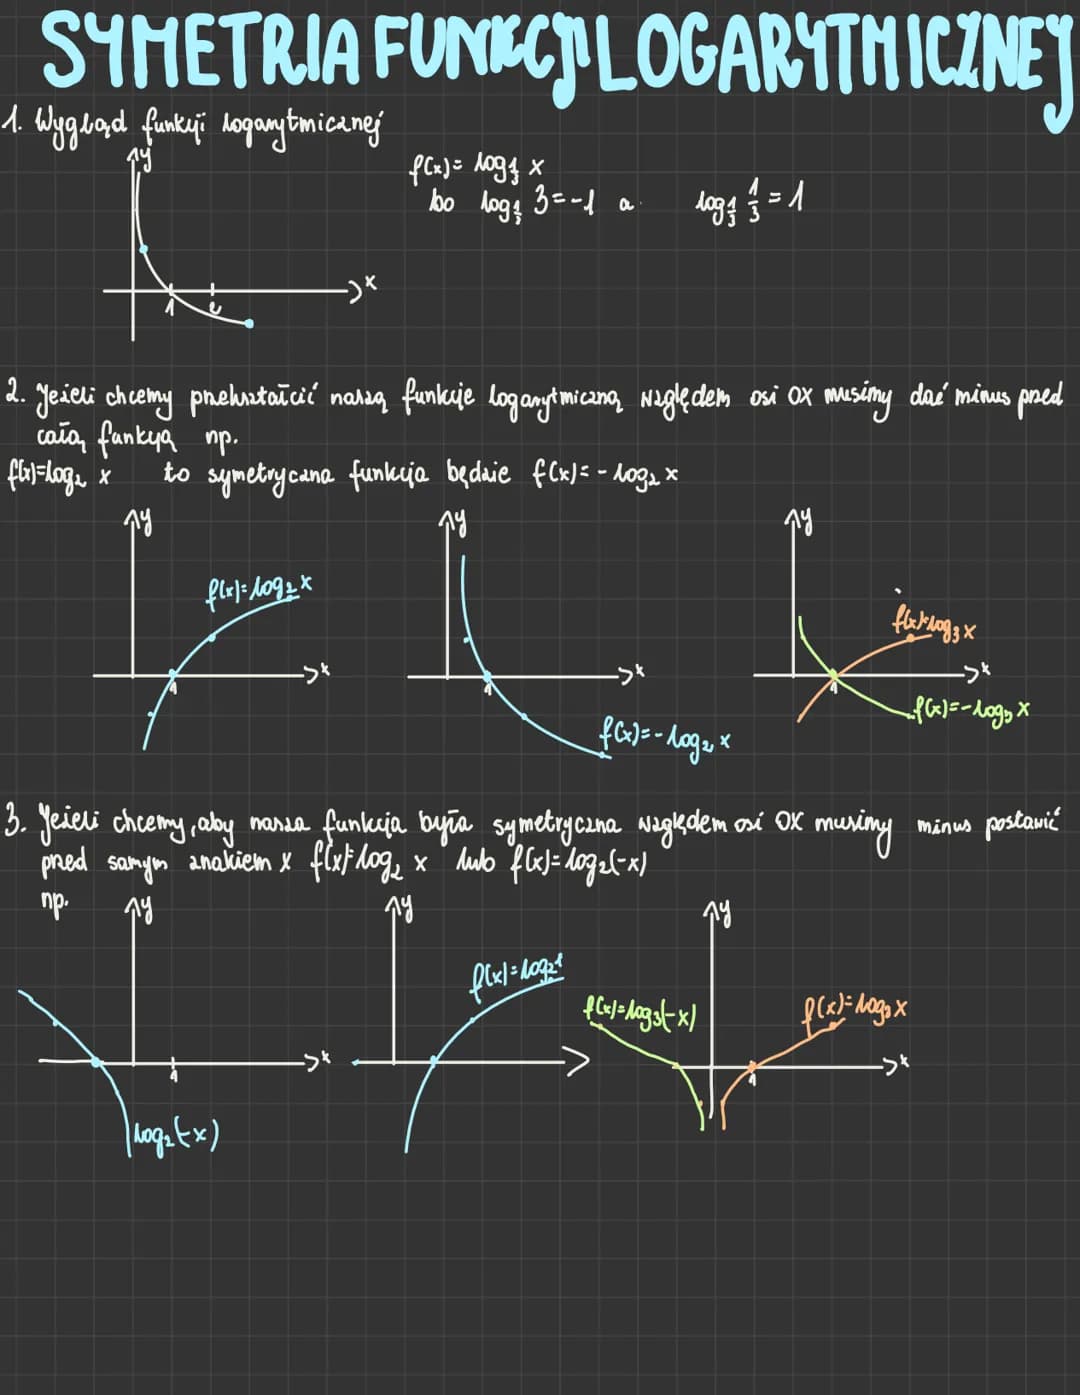 SYMETRIA FUNKCJI LOGARYTMICZNEJ
1. Wygląd funkcji logarytmicznej
f(x)= log⅓ x
bo log⅓ 3=-1 a log⅓ ⅓ = 1
y
x
1
2. Jeżeli chcemy przekształcić naszą funkcje logarytmiczną względem osi OX musimy dać minus pred
całą funkcją np.
f(x)=log₂ x to symetryczna funkcja będzie f(x)= - log₂ x
y
f(x)=log₂ x
x
1
y
x
1
f(x)=-log₂ x
y
f(x)=log₃ x
x
1
f(x)=-log₃ x
3. Jeżeli chcemy, aby nasza funkcja była symetryczna względem osi OX musimy minus postawić
pred samym znakiem x f(x)=log₂ x lub f(x)=log₂(-x)
np.
y
x
1
log₂(-x)
y
f(x)=log₂
y
f(x)=log₃(-x)
f(x)=log₃x
x
1